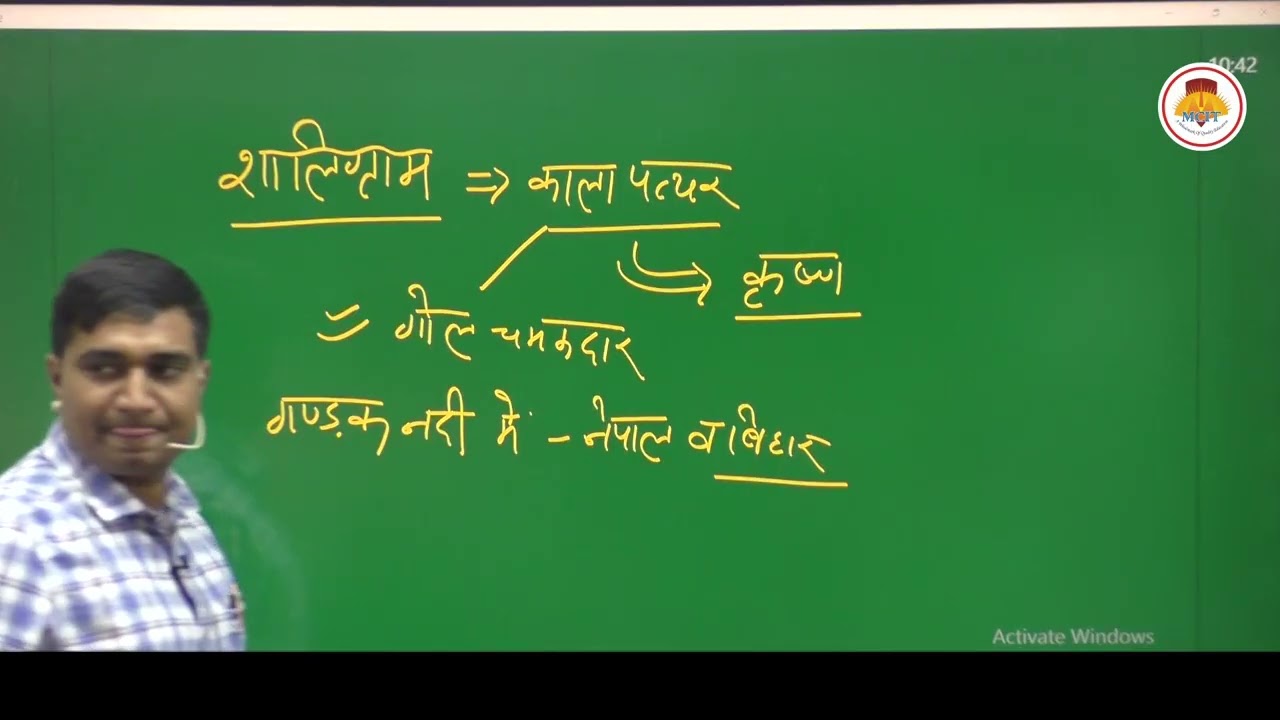 10:42
MCIT
शालिग्राम ⇒ काला पत्थर
कृष्ण
= गोल चमकदार
गण्ड़क नदी में - नेपाल व बिहार
Activate Windows